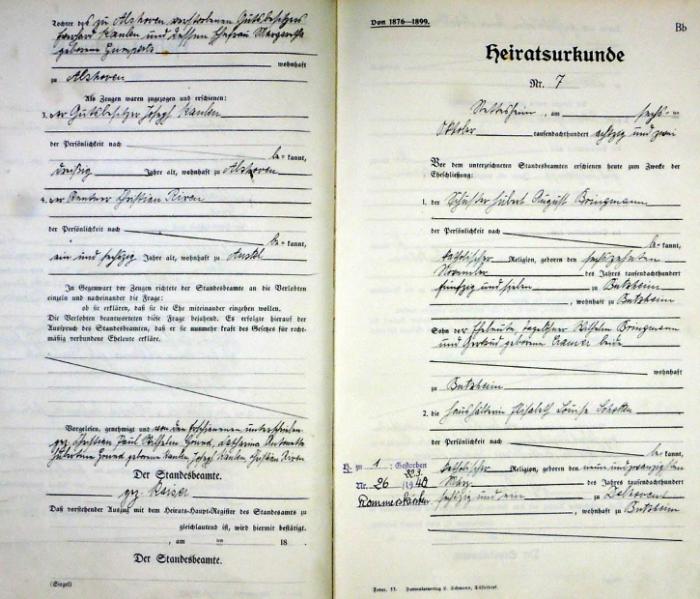 Tochter des zu Alshoven verstorbenen Gutsbesitzers
Kaulen und dessen Ehefrau Margaretha
geborene
wohnhaft
zu Alshoven
Als Zeugen waren zugezogen und erschienen:
3. der Gutsbesitzer Joseph Kaulen
der Persönlichkeit nach
be= kannt,
dreißig Jahre alt, wohnhaft zu Alshoven
4. der Rentner Christian
der Persönlichkeit nach
be= kannt,
ein und sechszig Jahre alt, wohnhaft zu Anstel
In Gegenwart der Zeugen richtete der Standesbeamte an die Verlobten
einzeln und nacheinander die Frage:
ob sie erklären, daß sie die Ehe miteinander eingehen wollen.
Die Verlobten beantworteten diese Frage bejahend. Es erfolgte hierauf der
Ausspruch des Standesbeamten, daß er sie nunmehr kraft des Gesetzes für recht-
mäßig verbundene Eheleute erkläre.
Vorgelesen, genehmigt und von den Erschienenen unterschrieben
gez. Christian Paul Wilhelm Catharina Antonetta
geborene Kaulen Joseph Kaulen Christian
Der Standesbeamte.
gez. Kaiser
Daß vorstehender Auszug mit dem Heirats-Haupt-Register des Standesamts zu
gleichlautend ist, wird hiermit bestätigt.
, am ten 18
Der Standesbeamte.
(Siegel)
Von 1876—1899.
Bb
Heiratsurkunde
Nr. 7
Nettesheim, am sechs=
Oktober tausendachthundert achtzig und zwei
Vor dem unterzeichneten Standesbeamten erschienen heute zum Zwecke der
Eheschließung:
1. der Schuster Hubert August Bringmann
der Persönlichkeit nach
be= kannt,
katholischer Religion, geboren den sechszehnten
November des Jahres tausendachthundert
fünfzig und sieben zu Butzheim
, wohnhaft zu Butzheim
Sohn der Eheleute, Tagelöhner Wilhelm Bringmann
und Gertrud geborene Cramer beide
wohnhaft
zu Butzheim
2. die Haushälterin Elisabeth Louise
der Persönlichkeit nach
be= kannt,
katholischer Religion, geboren den neunundzwanzigsten
März des Jahres tausendachthundert
sechszig und ein zu Delhoven
, wohnhaft zu Butzheim
zu 1: Gestorben
Nr. 26 /1940
Rommerskirchen